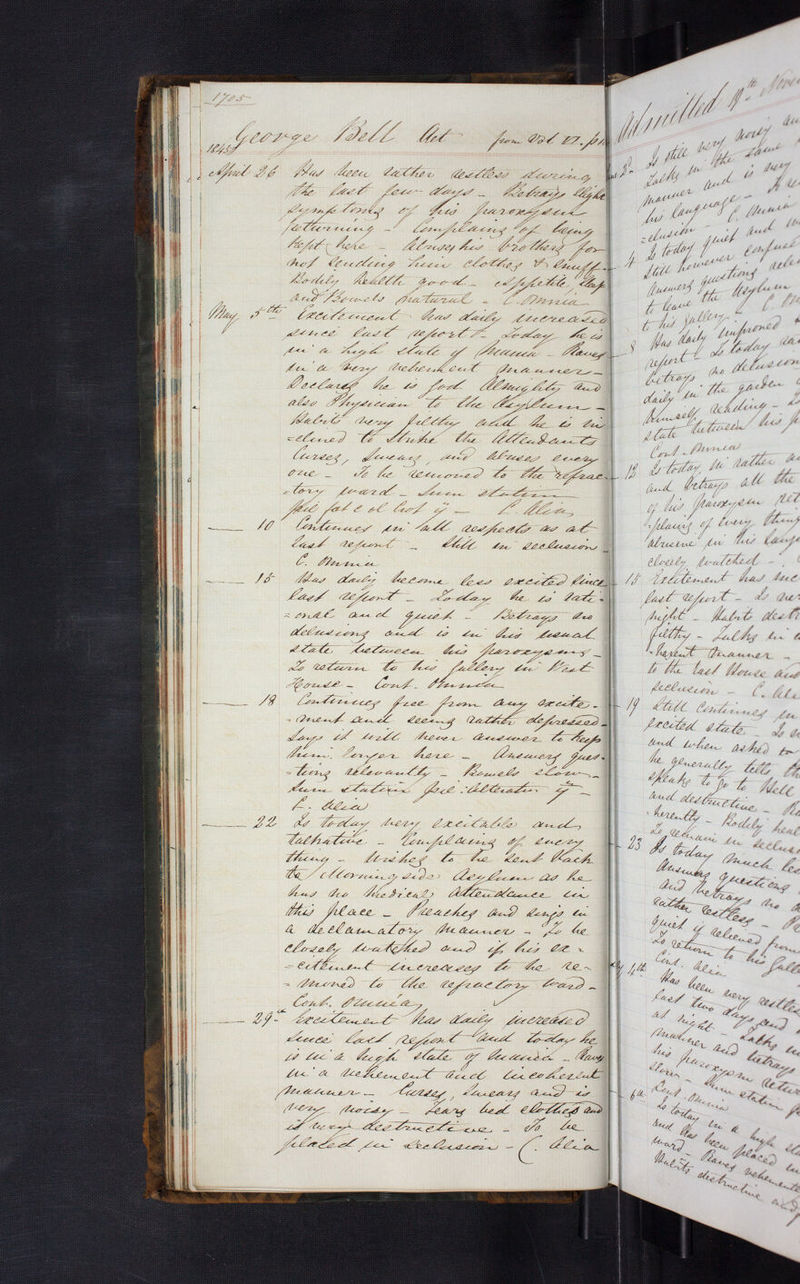 1705
George Bell Aet from Vol VI. p
1845
April 26 Has been rather restless during
the last few days - Betrays slight
symptoms of his paroxysm
returning - Complains of being
kept here - Abuses his brothers for
not sending him clothes & snuff -
Bodily health good - Appetite, Sleep
and Bowels natural - C. Omnia
May 5th Excitement has daily increased
since last report - Today he is
in a high state of Mania - Raves
in a very vehement manner -
Declares he is God Almighty and
also Physician to the Asylum -
Habits very filthy and he is in
=clined to strike the Attendants
Curses, Swears, and abuses every
one - To be removed to the refrac-
=tory ward - Sum statim
C. Alia
10 Continues in all respects as at
last report - Still in seclusion -
C. Omnia
15 Has daily become less excited since
last report - Today he is rati-
=onal and quiet - Betrays no
delusions and is in his usual
state between his paroxysms -
To return to his Gallery in West
House - Cont. Omnia
18 Continues free from any excite-
-ment and seems rather depressed -
Says it will never answer to keep
him longer here - Answers ques-
-tions relevantly - Bowels slow -
Sum statim
C. Alia
22 Is today very excitable and
talkative - Complains of every
thing - Wishes to be sent back
to Morningside Asylum as he
has no Medical Attendance in
this place - Preaches and sings in
a declamatory manner - To be
closely watched and if his ex-
=citement increases to be re-
=moved to the refractory ward -
Cont. Omnia
29th Excitement has daily increased
since last report and today he
is in a high state of Mania - Raves
in a vehement and incoherent
manner - Curses, Swears and is
very noisy - Tears bed clothes and
is very destructive - To be
placed in seclusion - C. Alia
Admitted
Is still very noisy
Talks in the same
manner and is very
his language -
=clusion - C. Omnia
4 Is today quiet and
Still however confused
Answers questions
to leave the Asylum
to his gallery -
8 Has daily improved
report - Is today
betrays no delusion
daily in the garden
himself reading -
state between his
Cont. Omnia
12 Is today in rather
and betrays all the
of his paroxysm
=plains of every thing
abusive in his
closely watched -
15 Excitement has
last report - Is
night - Habits
filthy - Talks in
=herent manner -
to the East House and
seclusion -
19 Still continues in
excited state -
and when asked
he generally tells
speaks to go to Hell
and destructive -
=herently - Bodily
To remain in
23 Is today much
Answers questions
and betrays no
rather restless -
quiet if relieved from
To return to his
Cont. Alia
Has been very
last two days and
at night - Talks
manner and betrays
his paroxysm
Sum statim
Cont. Omnia
6th Is today in a high
and has been placed
ward - Raves
Habits destructive